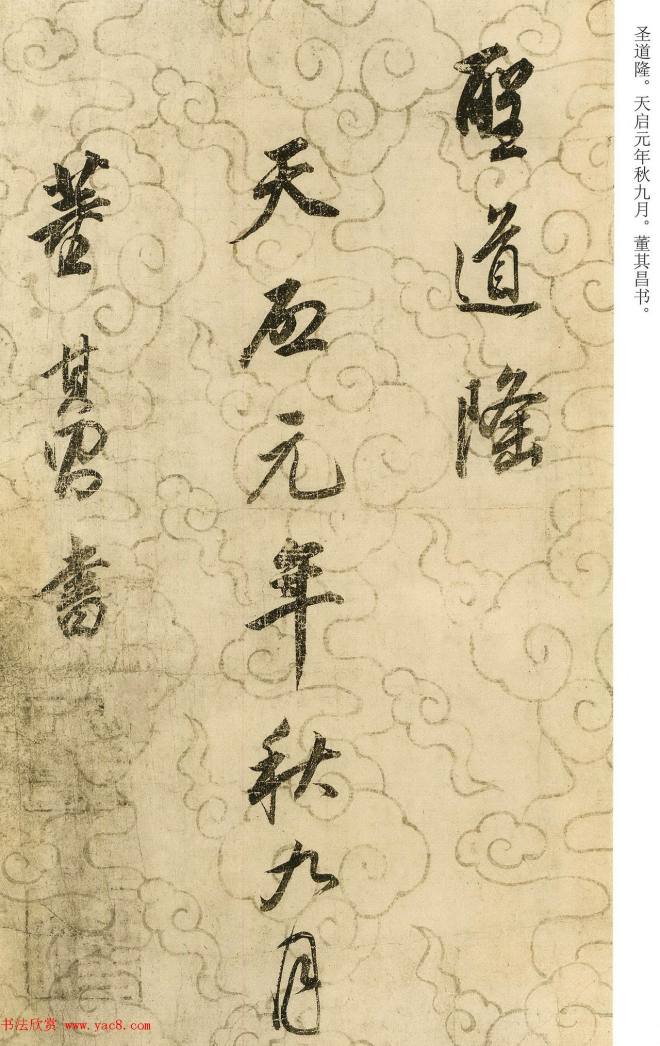 聖道隆
天啟元年秋九月
董其昌書
圣道隆。天启元年秋九月。董其昌书。
书法欣赏 www.yac8.com